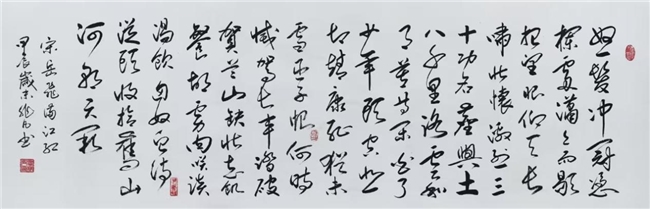 怒髮冲冠憑
欄處瀟瀟雨歇
抬望眼仰天長
嘯壯懷激烈三
十功名塵與土
八千里路雲和
月莫等閑白了
少年頭空悲
切靖康恥猶未
雪臣子恨何時
滅駕長車踏破
賀蘭山缺壯志飢
餐胡虜肉笑談
渴飲匈奴血待
從頭收拾舊山
河朝天闕
宋岳飛滿江紅
甲辰歲末書